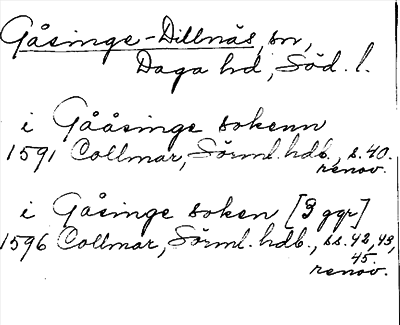 Gåsinge-Dillnäs, sn,
Daga hd, Söd. l.
i Gååsinge sokenn
1591 Collmar, Sörml. hdb., s. 40.
renov.
i Gåsinge soken [3 ggr]
1596 Collmar, Sörml. hdb., ss. 42, 43,
45.
renov.